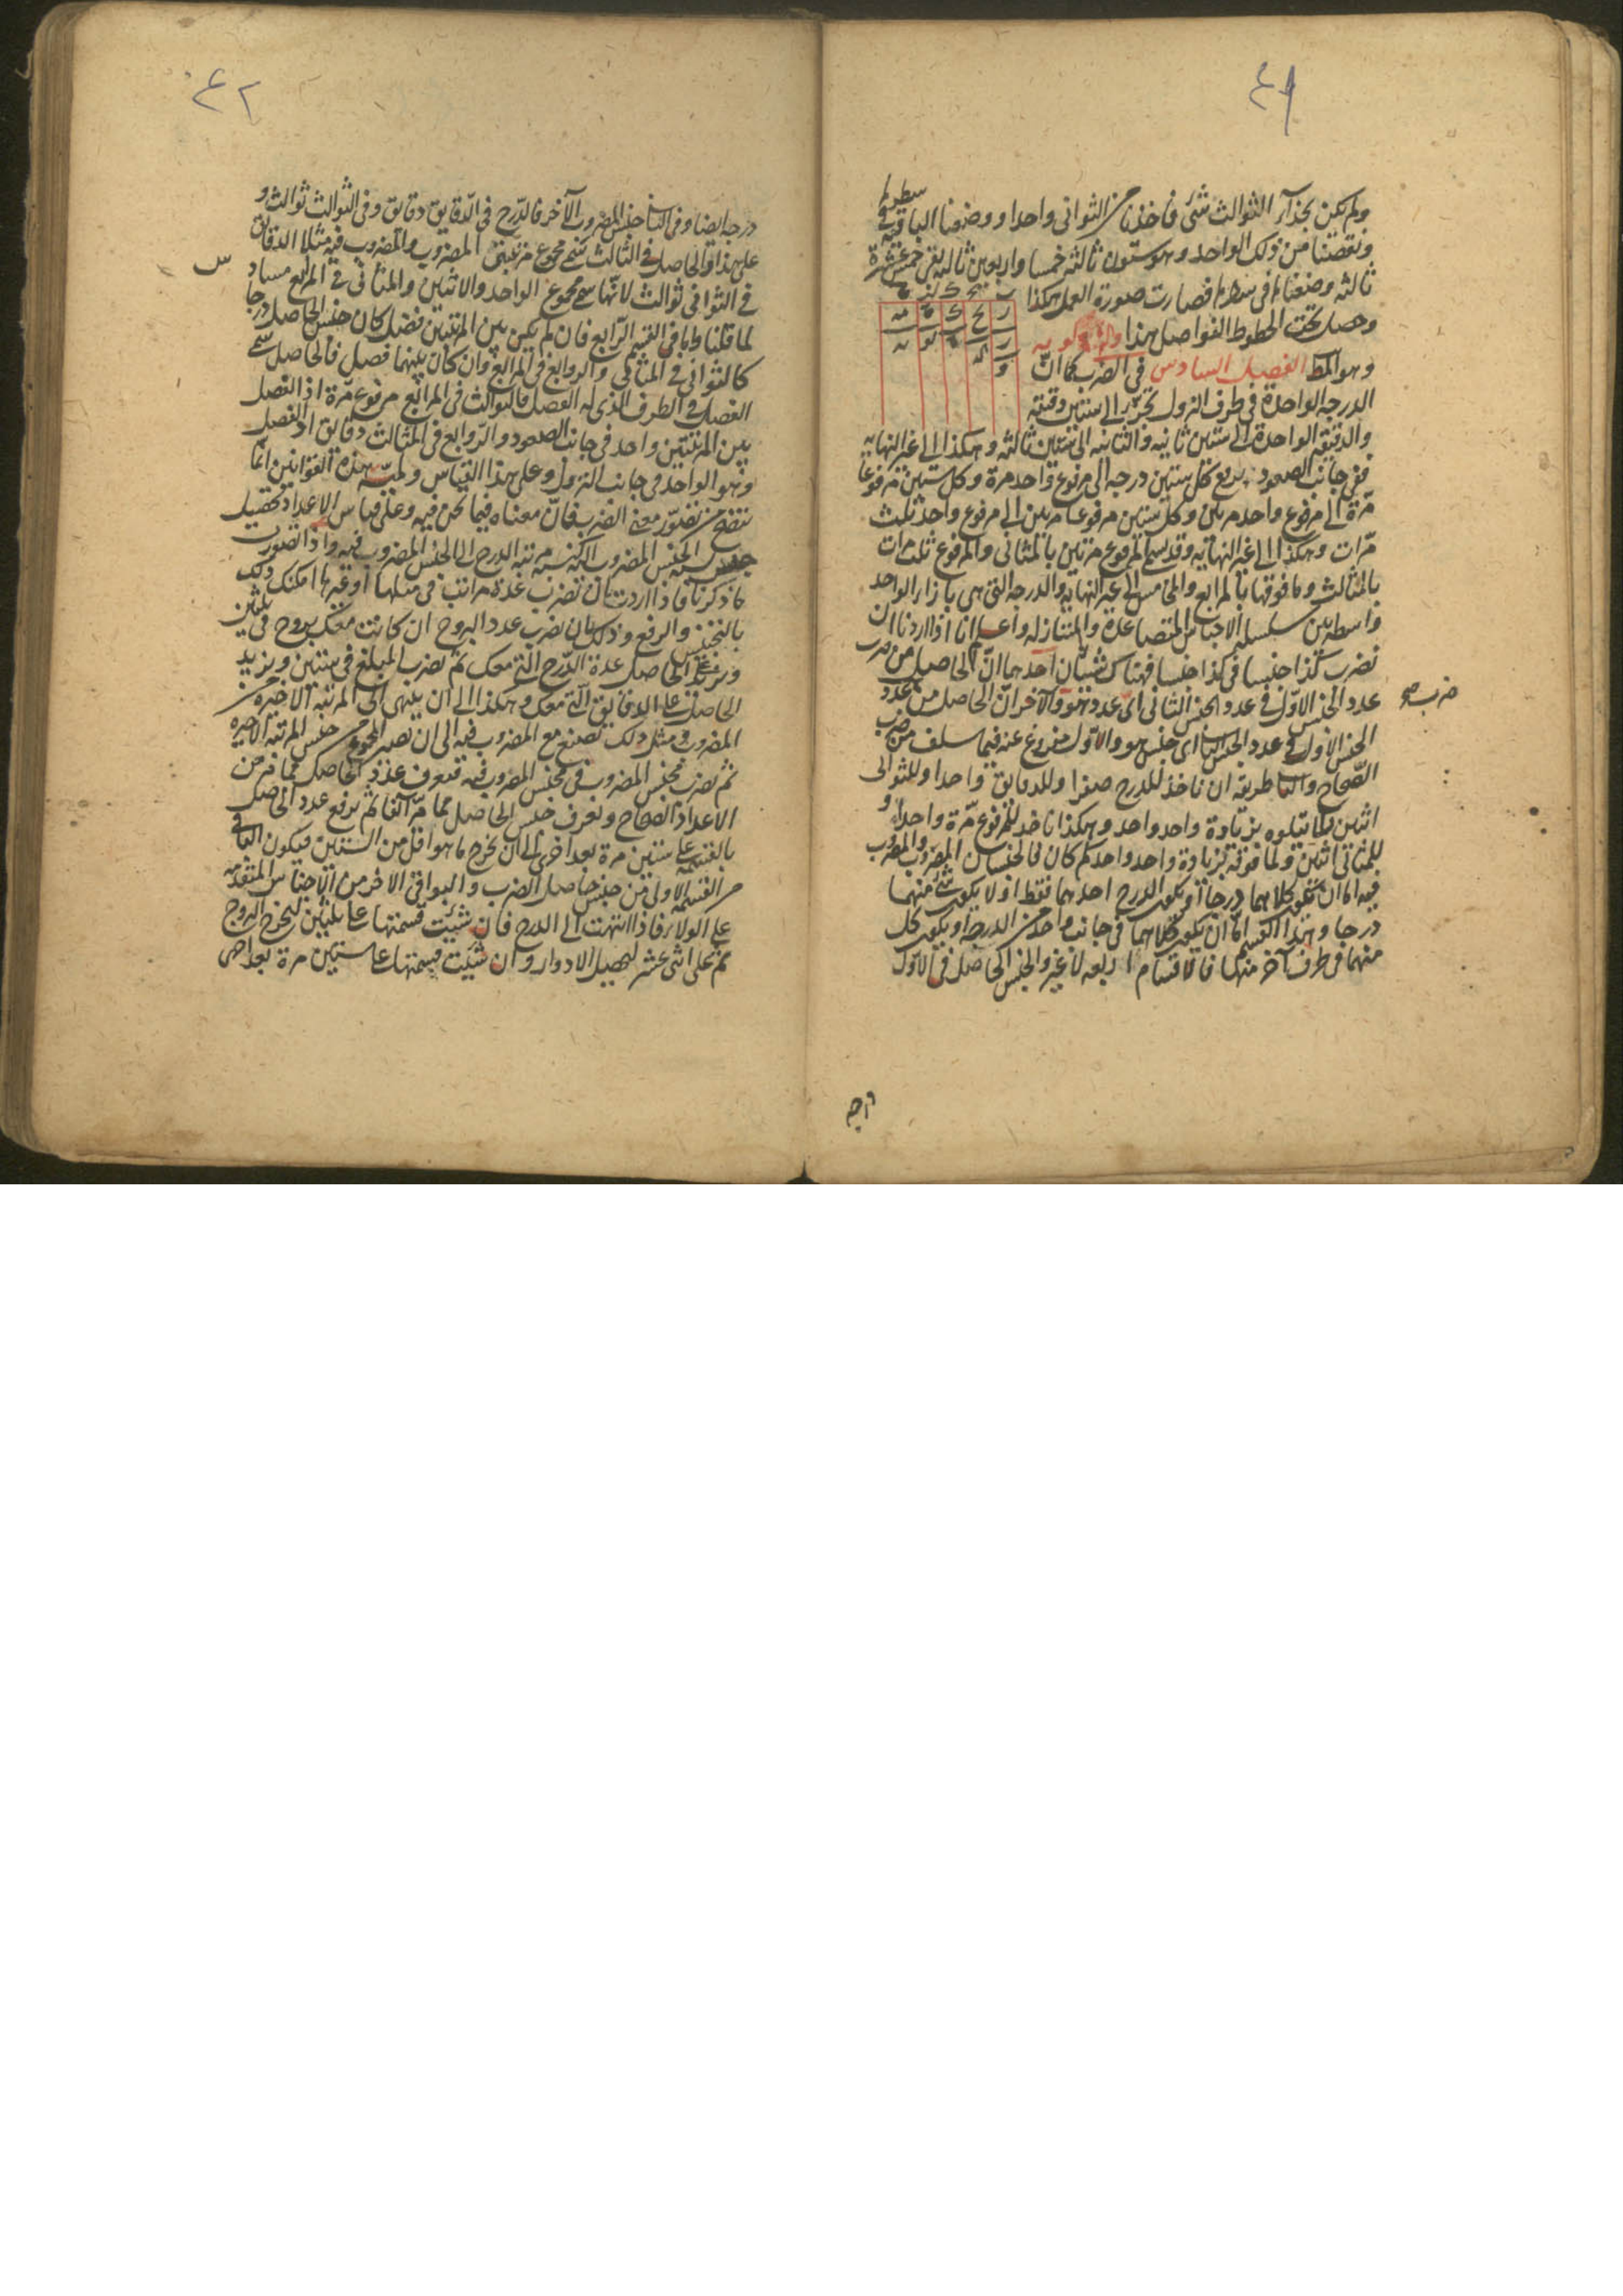 ٤١
ولم يكن بحذاء الثوالث شئ فاخذنا من الثواني واحدا ووضعنا الباقية في سطره
ونقصنا من ذلك الواحد وهو ستون ثالثة خمسا واربعين ثالثة بقى خمس عشرة
ثالثة وضعناه في سطره فصارت صورة العمل هكذا
وحصل تحت الخطوط الفواصل هذا
وهو المط الفصل السادس في الضرب كما انّ
الدرجة الواحدة في طرف النزول تجزّى الى ستين دقيقة
والدقيقة الواحدة الى ستين ثانية والثانية الى ستين ثالثة وهكذا الى غير النهاية
ففي جانب الصعود يرفع كل ستين درجة الى مرفوع واحد مرة وكل ستين مرفوعا
مرّة الى مرفوع واحد مرتين وكل ستين مرفوعا مرتين الى مرفوع واحد ثلث
مرّات وهكذا الى غير النهاية وقد يسم المرفوع مرتين بالمثاني والمرفوع ثلث مرات
بالمثالث وما فوقها بالمرابع والمخامس الى غير النهاية والدرجة التي هي بازاء الواحد
واسطة بين سلسلة الاجناس المتصاعدة والمتنازلة واعلم انا اذا اردنا ان
نضرب كذا جنسا في كذا جنسا فهناك شيئان احدهما انّ الحاصل من ضرب
عدد الجنس الاوّل في عدد الجنس الثاني اىّ عدد هو والآخر انّ الحاصل من عدد
ضرب صح
الجنس الاول في عدد الجنس الثا اى جنس هو والاوّل مفروغ عنه فيما سلف من ضرب
الصّحاح والثا طريقه ان ناخذ للدرج صفرا وللدقايق واحدا وللثواني
اثنين ولما يتلوه بزيادة واحد واحد وهكذا ناخذ للمرفوع مرّة واحدا و
للمثاني اثنين ولما فوقه بزيادة واحد واحد ثم كان فالجنسان المضروب والمضروب
فيه اما ان يكون كلاهما درجا أو يكون الدرج احدهما فقط او لا يكون شئ منهما
درجا وهذا القسم امّا ان يكون كلاهما في جانب واحد من الدرجة او يكون كل
منهما في طرف آخر منها فالاقسام اربعة لا غير والجنس الحاصل في الاوّل
درجة
٤٢
درجة ايضا وفي الثا جنس المضروب الآخر فالدّرج في الدّقايق دقايق وفي الثوالث ثوالث و
على هذا والحاصل في الثالث سمّى مجموع مرتبتى المضروب والمضروب فيه مثلا الدقايق
في الثواني ثوالث لانّها سمى مجموع الواحد والاثنين والمثاني في المرابع مساد
س
لما قلنا واما في القسم الرّابع فان لم يكن بين المرتبتين فضل كان جنس الحاصل درجا
كالثواني في المثاني والروابع في المرابع وان كان بينهما فضل فالحاصل سمى
الفضل في الطرف الذى له الفضل فالثوالث في المرابع مرفوع مرّة اذ الفضل
بين المرتبتين واحد في جانب الصعود والرّوابع في المثالث دقايق اذ الفضل
وهو الواحد في جانب النزول وعلى هذا القياس ولميّة هذه القوانين انّما
تتضح من تصوّر معنى الضرب فانّ معناه فيما نحن فيه وعلى قياس الاعداد تحصيل
جنس نسبة الجنس المضروب اليه كنسبة مرتبة الدرج الى الجنس المضروب فيه واذا تصورت
ما ذكرنا فاذا اردت ان تضرب عدة مراتب في مثلها او غيرها امكنك ذلك
بالتجنيس والرفع وذلك بان تضرب عدد البروج ان كانت معك بروج في ثلثين
وتزيد على الحاصل عدة الدّرج التي معك ثم تضرب المبلغ في ستين وتزيد
الحاصل على الدقايق الّتي معك وهكذا الى ان ينتهى الى المرتبة الاخيرة من
المضروب ومثل ذلك تصنع مع المضروب فيه الى ان تصير المجموع من جنس المرتبة الاخيرة
ثم تضرب مجنس المضروب في مجنس المضروب فيه فتعرف عدد الحاصل مما مر من
الاعداد الصحاح وتعرف جنس الحاصل مما مرّ آنفا ثم ترفع عدد الحاصل
بالقسمة على ستين مرة بعد اخرى الى ان يخرج ما هو اقل من الستين فيكون الباقي
من القسمة الاولى من جنس حاصل الضرب والبواقي الاخر من الاجناس المتقدمة
على الولاء فاذا انتهت الى الدرج فان شئت قسمتها على ثلثين ليخرج البروج
ثم على اثنى عشر لتحصيل الادوار وان شئت قسمتها على ستين مرة بعد اخرى